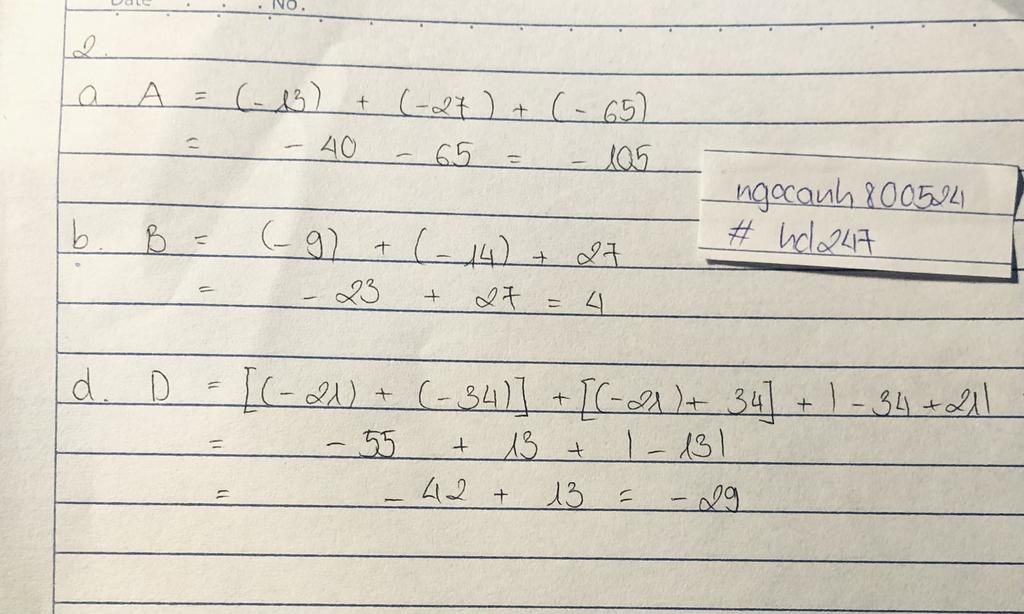 Date No.
2.
a A = (-13) + (-27) + (-65)
= - 40 - 65 = - 105
ngocanh800524
# hd247
b. B = (-9) + (-14) + 27
= - 23 + 27 = 4
d. D = [(-21) + (-34)] + [(-21) + 34] + |-34 + 21|
= - 55 + 13 + |-13|
= - 42 + 13 = - 29